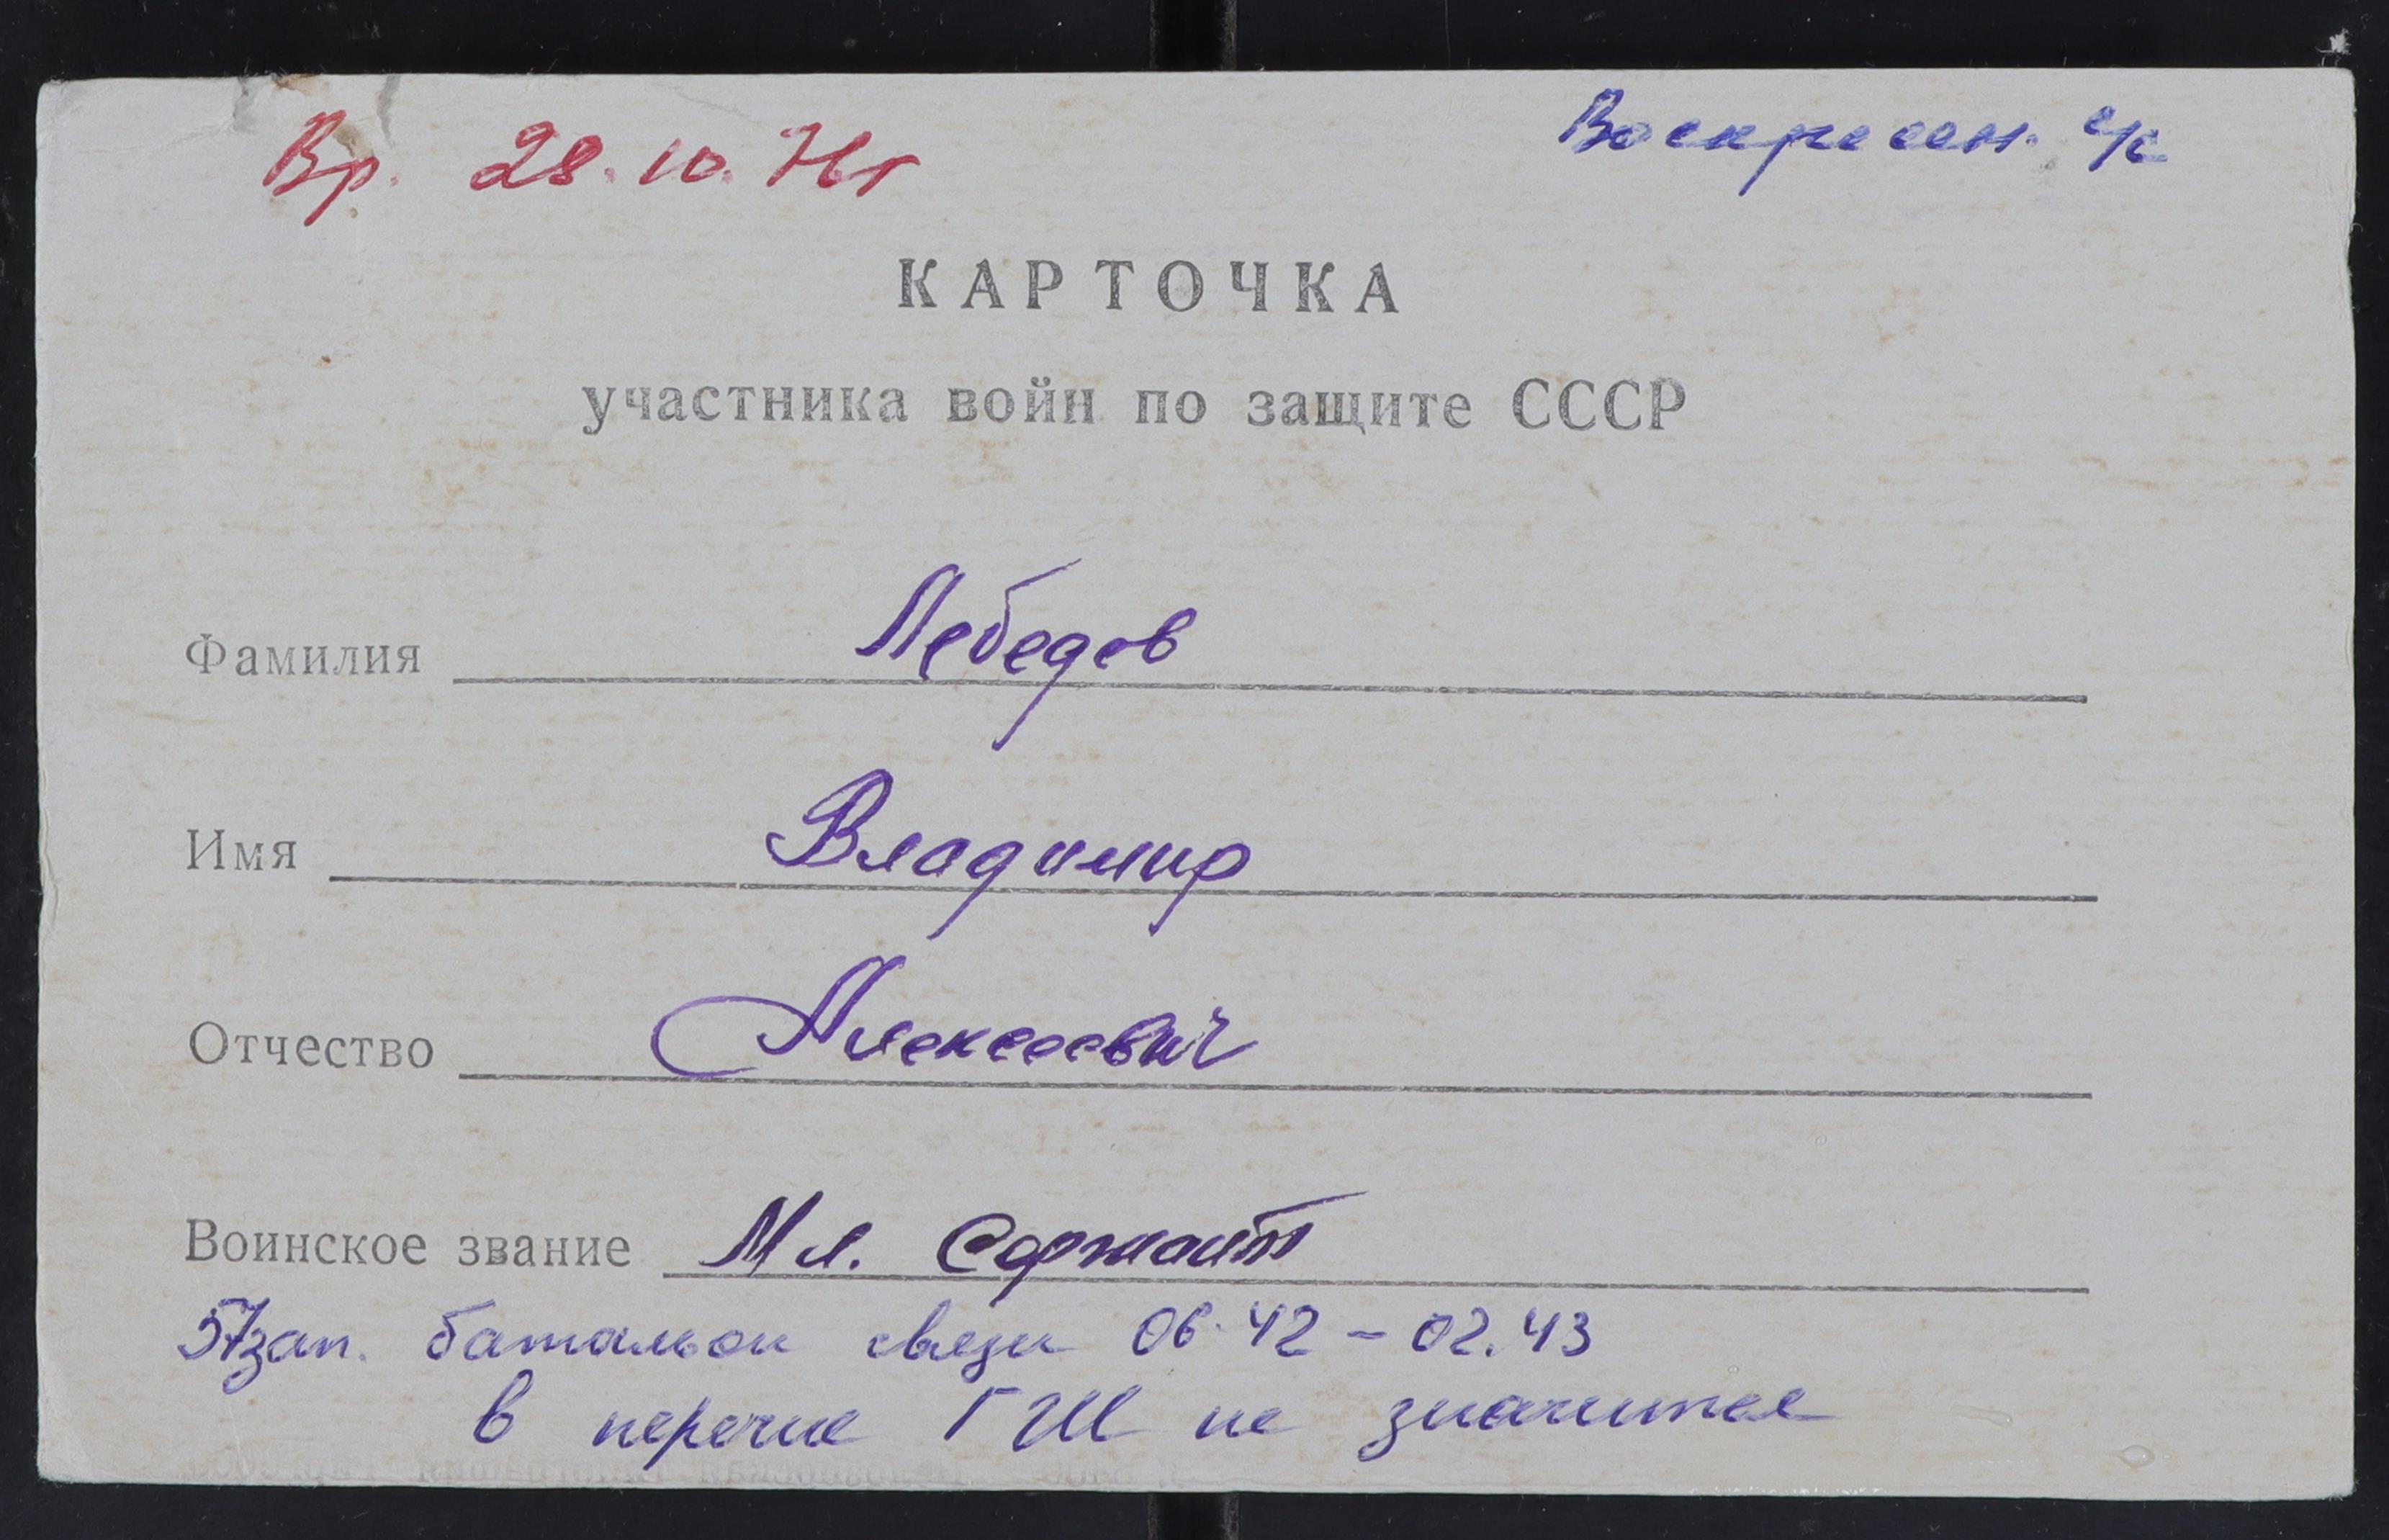 Вр. 28.10.76г Воскресен. с/с
КАРТОЧКА
участника войн по защите СССР
Фамилия Лебедев
Имя Владимир
Отчество Алексеевич
Воинское звание Мл. Сержант
57 зап. батальон связи 06.42 - 02.43
в перечне ГШ не значится